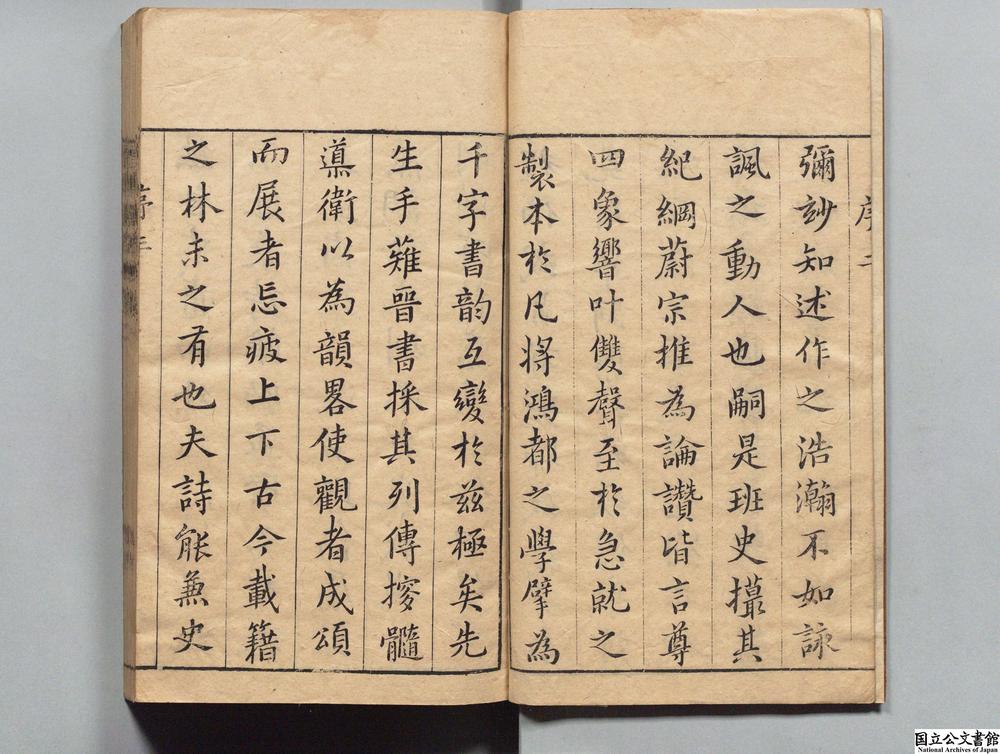 序 二
彌玅知述作之浩瀚不如詠
諷之動人也嗣是班史撮其
紀綱蔚宗推為論讚皆言尊
四象響叶雙聲至於急就之
製本於凡將鴻都之學擘為
千字書韵互變於兹極矣先
生手薙晉書採其列傳𢮥髓
導衛以為韻畧使觀者成頌
而展者忘疲上下古今載籍
之林未之有也夫詩能兼史
序 三
国立公文書館
National Archives of Japan